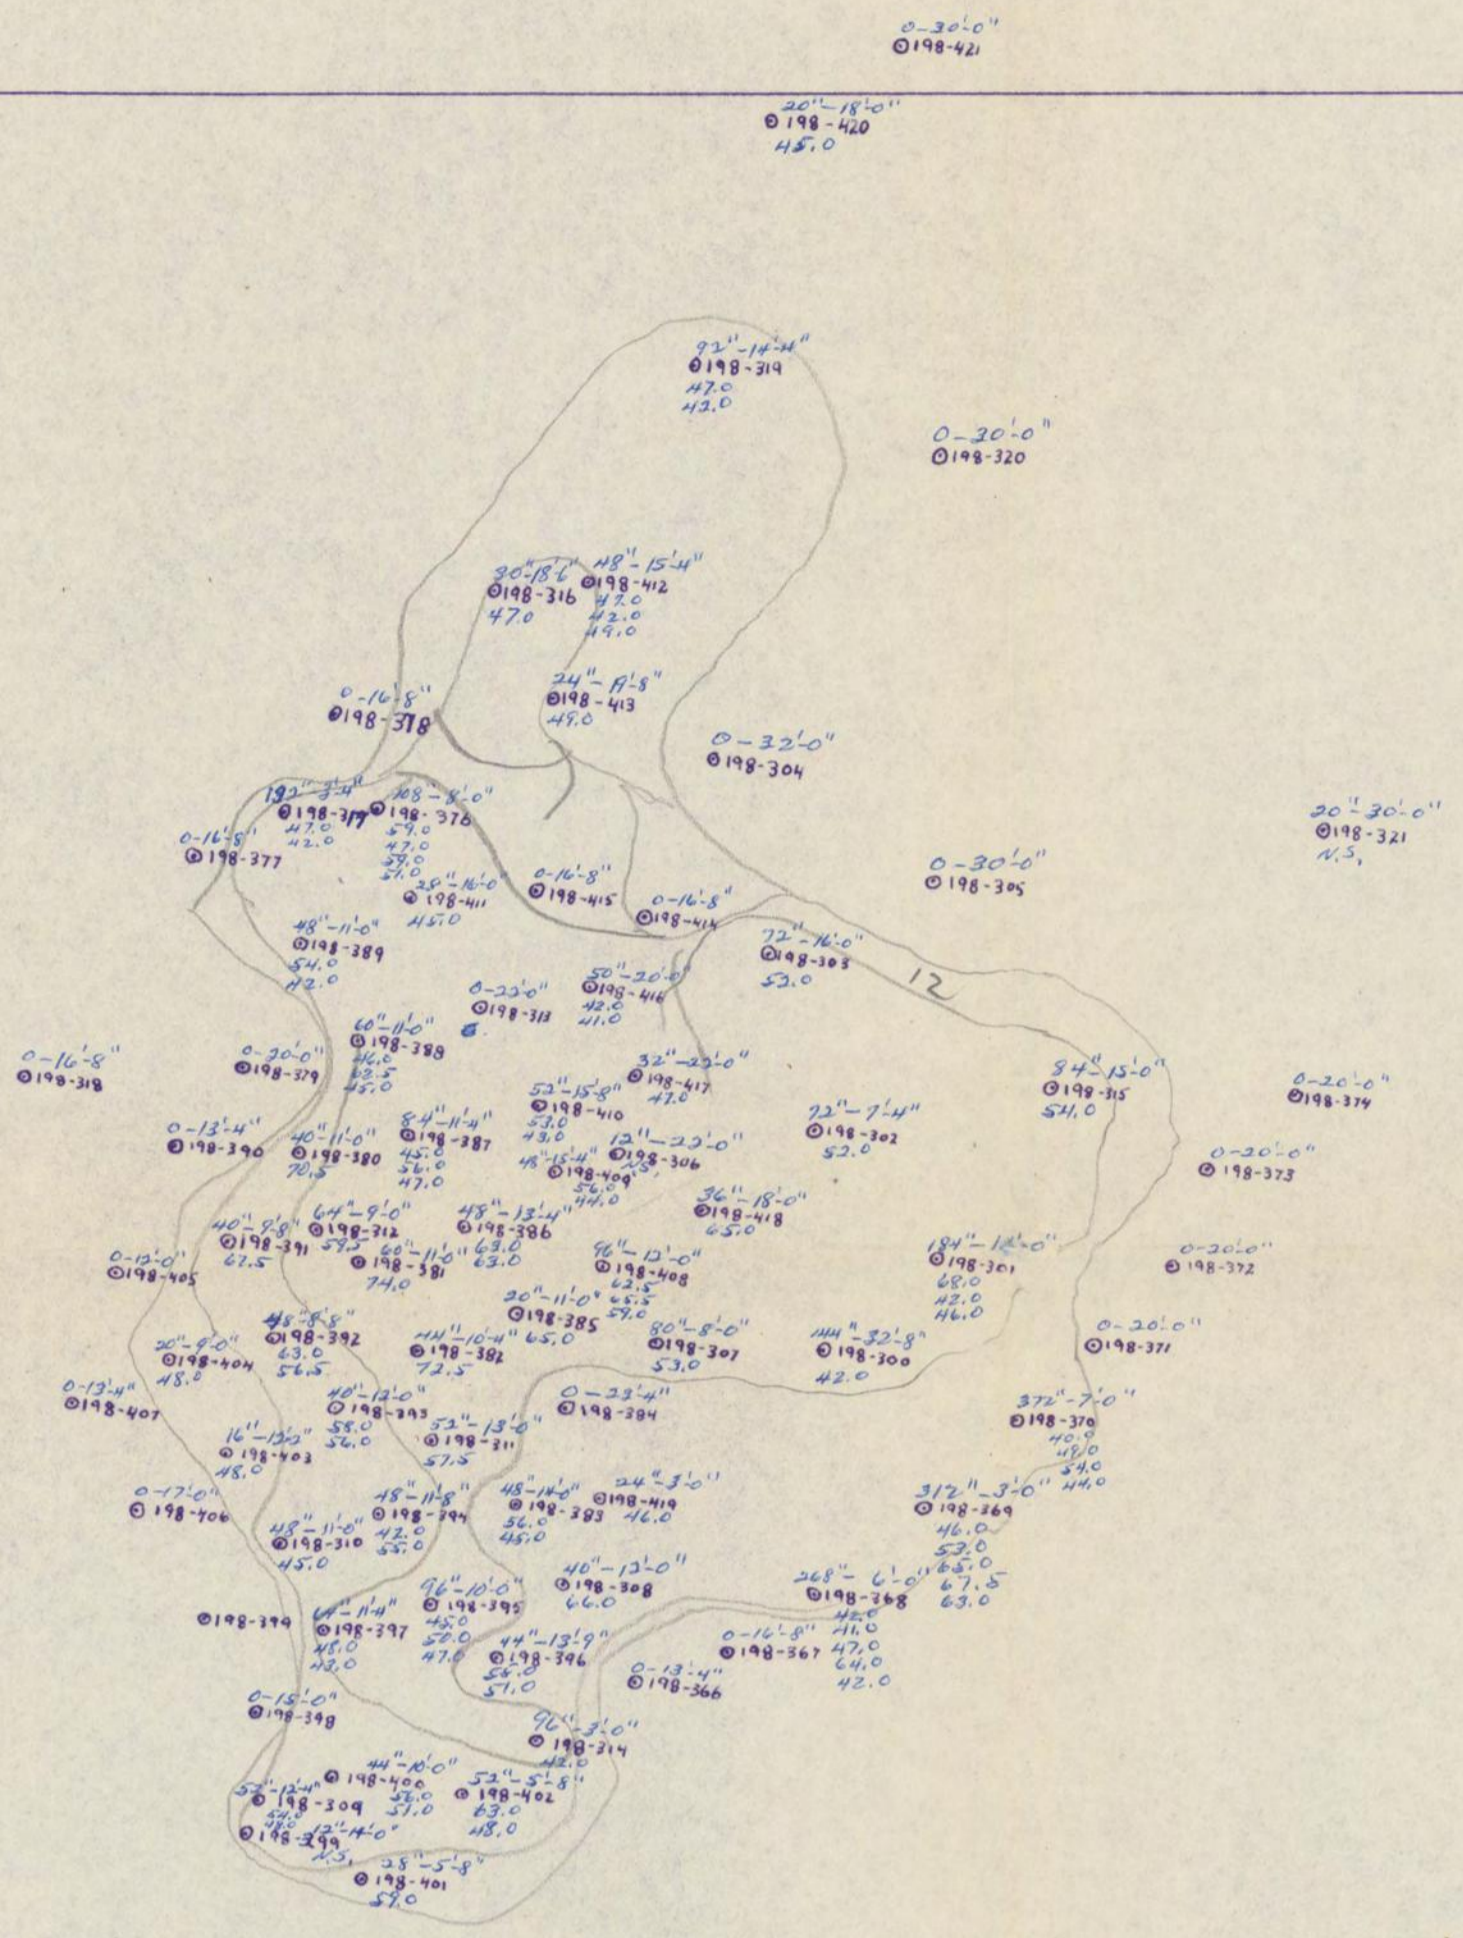 0-30'-0"
198-421
20"-18'-0"
198-420
45.0
92"-14'-4"
198-319
47.0
42.0
0-30'-0"
198-320
30"-18'-6"
198-316
47.0
48"-15'-4"
198-412
47.0
42.0
49.0
24"-19'-8"
198-413
49.0
0-16'-8"
198-378
0-32'-0"
198-304
192"-3'-4"
47.0
42.0
108"-8'-0"
198-376
59.0
47.0
59.0
51.0
20"-30'-0"
198-321
N.S.
0-16'-8"
198-377
28"-16'-0"
198-411
45.0
0-16'-8"
198-415
0-16'-8"
198-414
0-30'-0"
198-305
48"-11'-0"
198-389
54.0
42.0
72"-16'-0"
198-303
52.0
12
0-22'-0"
198-313
50"-20'-0"
198-416
42.0
41.0
60"-11'-0"
198-388
46.0
62.5
45.0
0-16'-8"
198-318
0-20'-0"
198-379
32"-22'-0"
198-417
47.0
84"-15'-0"
198-315
54.0
0-20'-0"
198-374
52"-15'-8"
198-410
53.0
43.0
0-13'-4"
198-390
40"-11'-0"
198-380
70.5
84"-11'-4"
198-387
45.0
56.0
47.0
72"-7'-4"
198-302
52.0
12"-22'-0"
198-306
N.S.
48"-15'-4"
198-409
56.0
44.0
0-20'-0"
198-373
36"-18'-0"
198-418
65.0
40"-9'-8"
198-391
67.5
64"-9'-0"
198-312
59.5
48"-13'-4"
198-386
63.0
63.0
60"-11'-0"
198-381
74.0
0-12'-0"
198-405
96"-12'-0"
198-408
62.5
65.5
59.0
184"-
198-301
68.0
42.0
46.0
0-20'-0"
198-372
20"-11'-0"
198-385
65.0
48"-8'-8"
198-392
63.0
56.5
44"-10'-4"
198-382
72.5
80"-8'-0"
198-307
53.0
144"-32'-8"
198-300
42.0
0-20'-0"
198-371
20"-9'-0"
198-404
48.0
0-13'-4"
198-407
40"-12'-0"
198-393
58.0
56.0
0-23'-4"
198-384
372"-7'-0"
198-370
40.0
49.0
54.0
44.0
16"-12'-2"
198-403
48.0
52"-13'-0"
198-311
57.5
0-17'-0"
198-406
48"-11'-8"
198-394
42.0
55.0
48"-14'-0"
198-383
56.0
45.0
24"-3'-0"
198-419
46.0
312"-3'-0"
198-369
46.0
53.0
65.0
67.5
63.0
48"-11'-0"
198-310
45.0
40"-12'-0"
198-308
66.0
268"-6'-0"
198-368
42.0
41.0
47.0
64.0
42.0
96"-10'-0"
198-395
45.0
50.0
47.0
198-399
64"-11'-4"
198-397
48.0
43.0
44"-13'-9"
198-396
55.0
51.0
0-16'-8"
198-367
0-13'-4"
198-366
0-15'-0"
198-398
96"-3'-0"
198-314
42.0
44"-10'-0"
198-400
56.0
51.0
52"-12'-4"
198-309
54.0
52"-5'-8"
198-402
63.0
48.0
12"-14'-0"
198-299
N.S.
28"-5'-8"
198-401
59.0